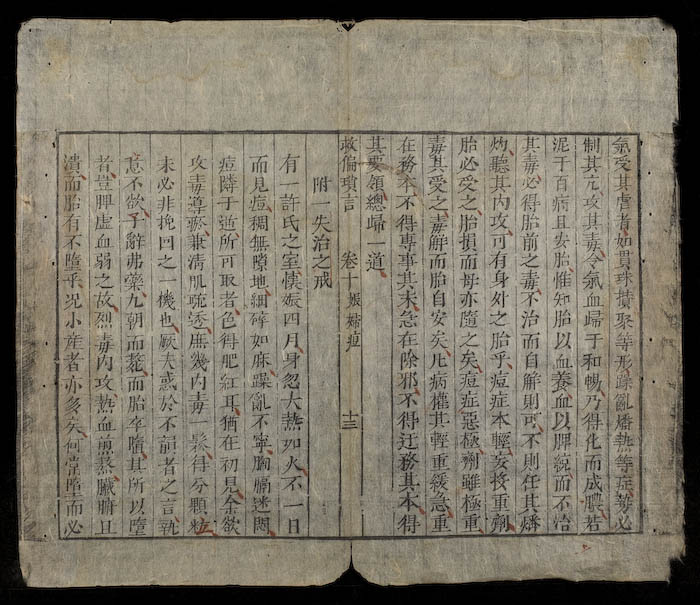 氣受其虐者如貫珠攢聚等形躁亂膰熱等症勢必
制其亢攻其毒令氣血歸于和暢乃得化而成膿若
泥于百病且安胎惟知胎以血養血以脾統而不治
其毒必得胎前之毒不治而自解則可不則任其燔
灼聽其內攻可有身外之胎乎痘症本輕妄投重劑
胎必受之胎損而母亦隨之矣痘症惡極劑雖極重
毒其受之毒解而胎自安矣凡病權其輕重緩急重
在務本不得專事其末急在除邪不得迂務其本得
其要領總歸一道
救偏瑣言 卷十 娠婦痘 十三
附一失治之戒
有一許氏之室懷娠四月身忽大熱如火不一日
而見痘稠無隙地細碎如麻躁亂不寧胸膈迷悶
痘隣于逝所可取者色得肥紅耳猶在初見余欲
攻毒導瘀兼清肌疏透庶幾內毒一鬆得分顆粒
未必非挽回之一機也厥夫惑於不韻者之言執
意不欲予辭弗藥九朝而斃而胎卒墮其所以墮
者豈脾虛血弱之故烈毒內攻熱血煎蒸臟腑且
潰而胎有不墮乎况小產者亦多矣何常墮而必